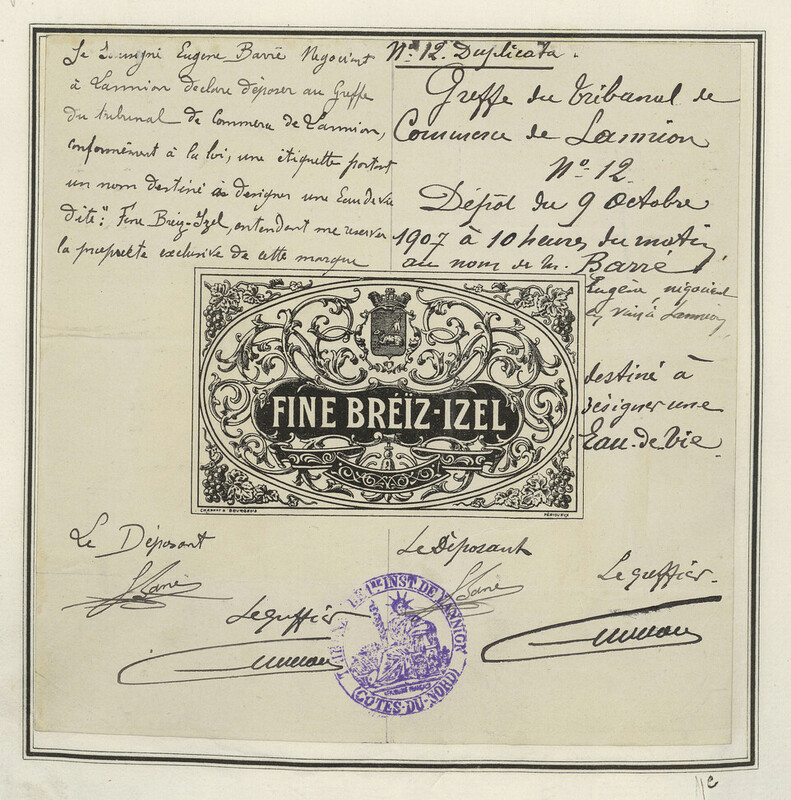 Je Soussigné Eugène Barré Négociant
à Lannion déclare déposer au Greffe
du tribunal de Commerce de Lannion,
conformément à la loi, une étiquette portant
un nom destiné à designer une Eau de vie
dite: Fine Breiz-Izel, entendant me reserver
la propriété exclusive de cette marque
Nº 12. Duplicata.
Greffe du tribunal de
Commerce de Lannion
Nº 12
Dépôt du 9 Octobre
1907 à 10 heures du matin
au nom de M. Barré
Eugène, négociant
en vins à Lannion,
destiné à
désigner une
Eau-de-Vie
FINE BRÉÏZ-IZEL
Le Déposant
Le Déposant
Le greffier
Le greffier
1RE INST DE LANNION
REPUBLIQUE FRANÇAISE
(COTES-DU-NORD)